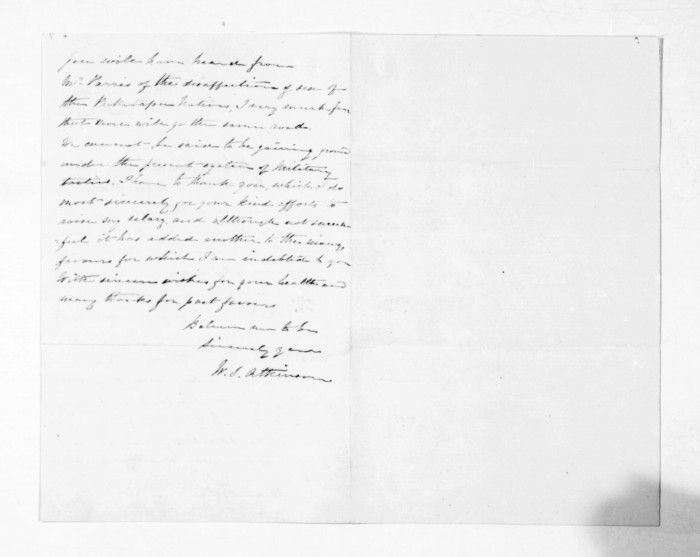 you will have heard from
Mr. Parris of the disaffection of some of
the Natives, I very much fear
that ours will go the same road.
We cannot be said to be gaining ground
under the present system of Military
tactics. I have to thank you, which I do
most sincerely for your kind efforts to
raise my salary and although not success
-ful it has added another to the many
favours for which I am indebted to you
With sincere wishes for your health and
many thanks for past favours
Believe me to be
Sincerely yours
W. S. Atkinson